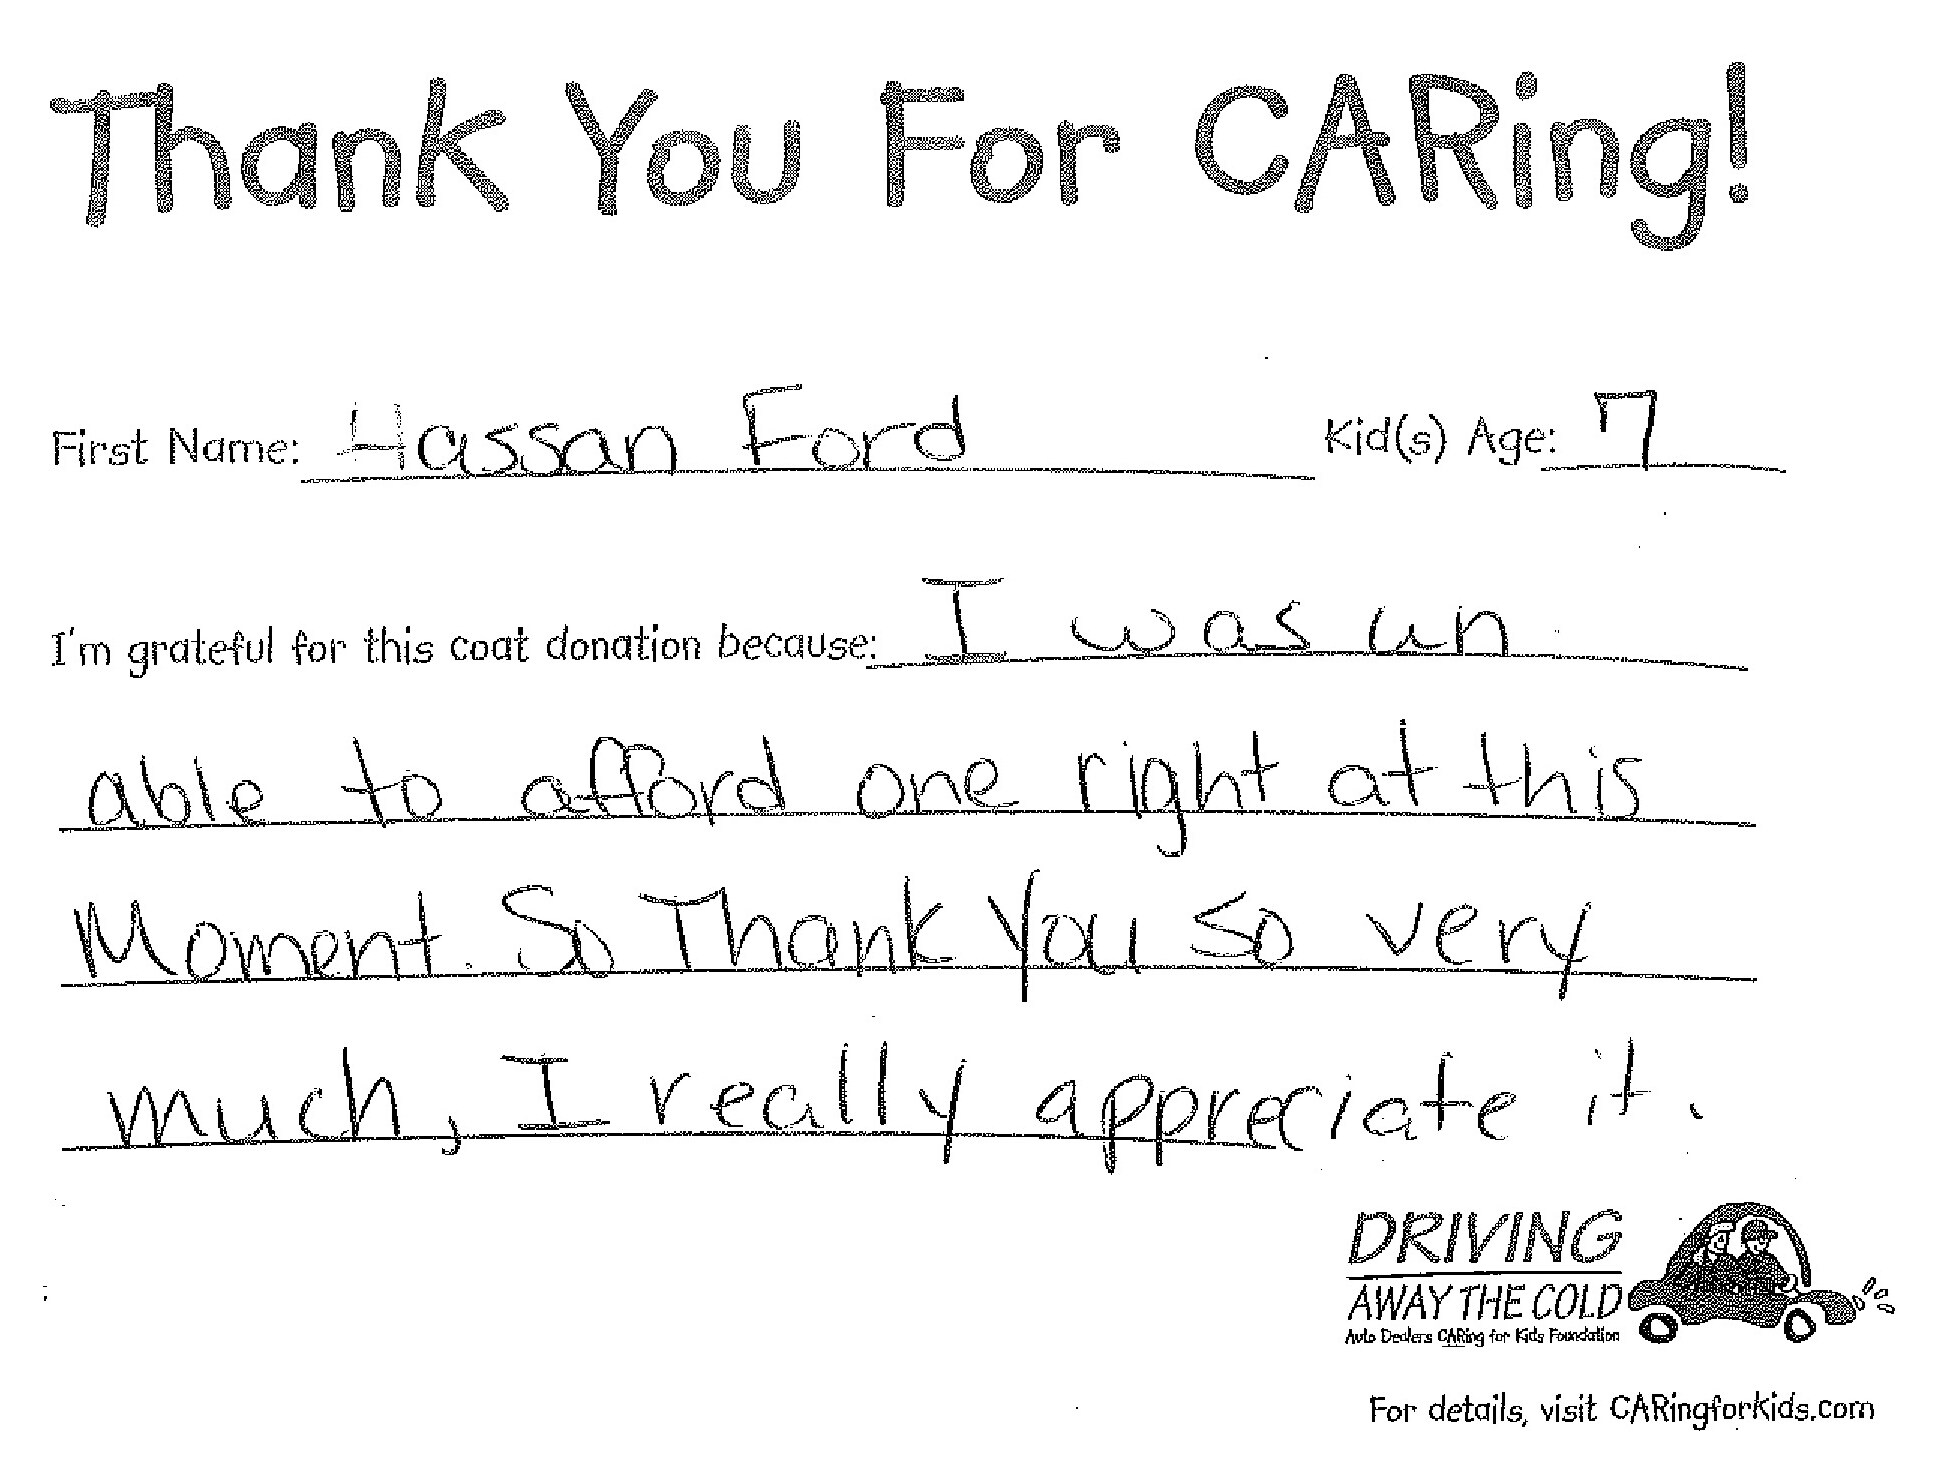 Thank You For CARing!
First Name: Hassan Ford Kid(s) Age: 7
I'm grateful for this coat donation because: I was un
able to afford one right at this
Moment. So Thank You so very
much, I really appreciate it.
DRIVING
AWAY THE COLD
Auto Dealers CARing for Kids Foundation
For details, visit CARingforkids.com